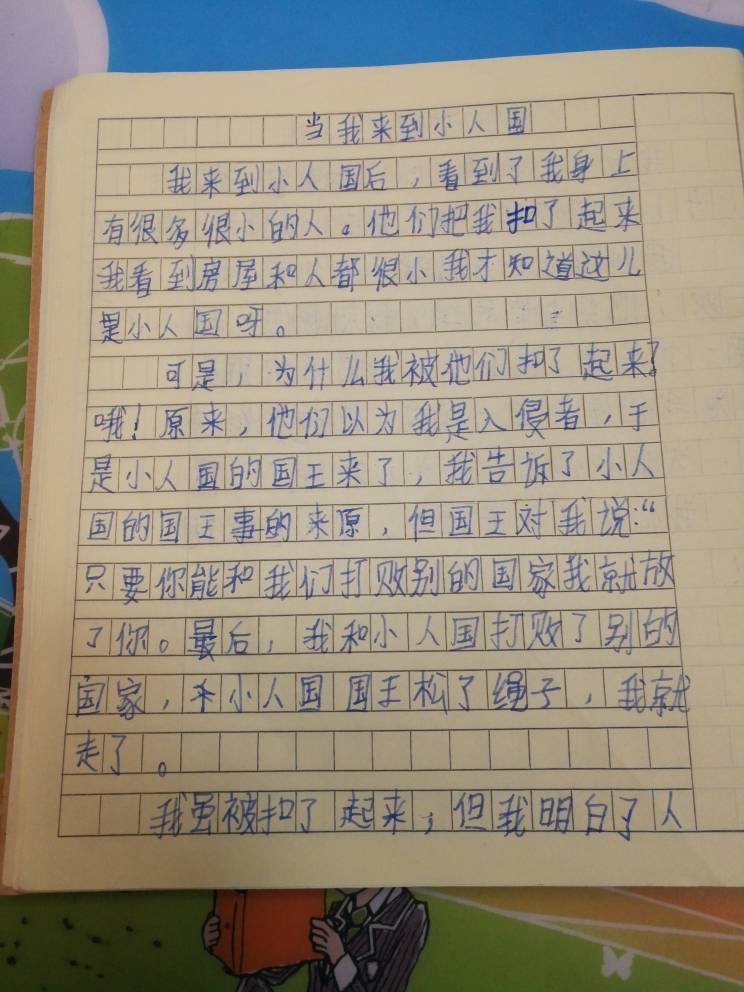 当我来到小人国
我来到小人国后，看到了我身上
有很多很小的人。他们把我扣了起来
我看到房屋和人都很小我才知道这儿
是小人国呀。
可是，为什么我被他们扣了起来？
哦！原来，他们以为我是入侵者，于
是小人国的国王来了，我告诉了小人
国的国王事的来原，但国王对我说：“
只要你能和我们打败别的国家我就放
了你。最后，我和小人国打败了别的
国家，小人国国王松了绳子，我就
走了。
我虽被扣了起来，但我明白了人